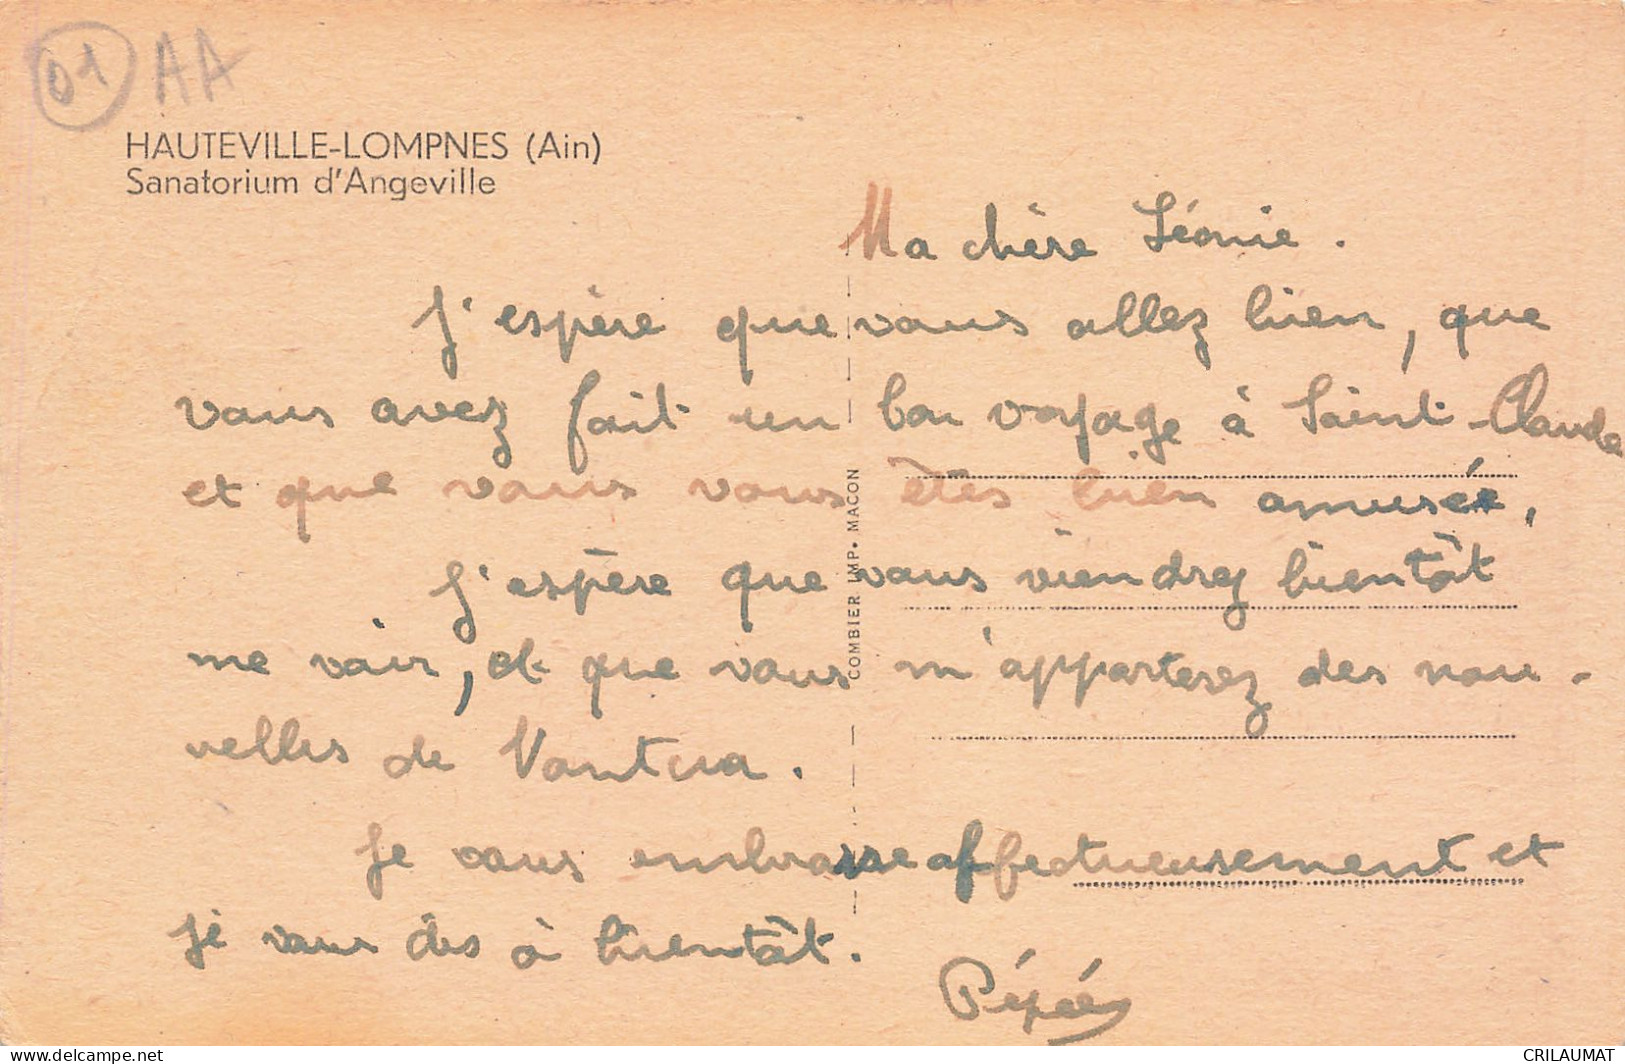 01 AA
HAUTEVILLE-LOMPNES (Ain)
Sanatorium d'Angeville
Ma chère Léonie.
J'espère que vous allez bien, que
vous avez fait un bon voyage à Saint-Claude
et que vous vous êtes bien amusée,
J'espère que vous viendrez bientôt
me voir, et que vous m'apporterez des nou-
velles de Nantua.
Je vous embrasse affectueusement et
je vous dis à bientôt.
COMBIER IMP. MACON
CRILAUMAT